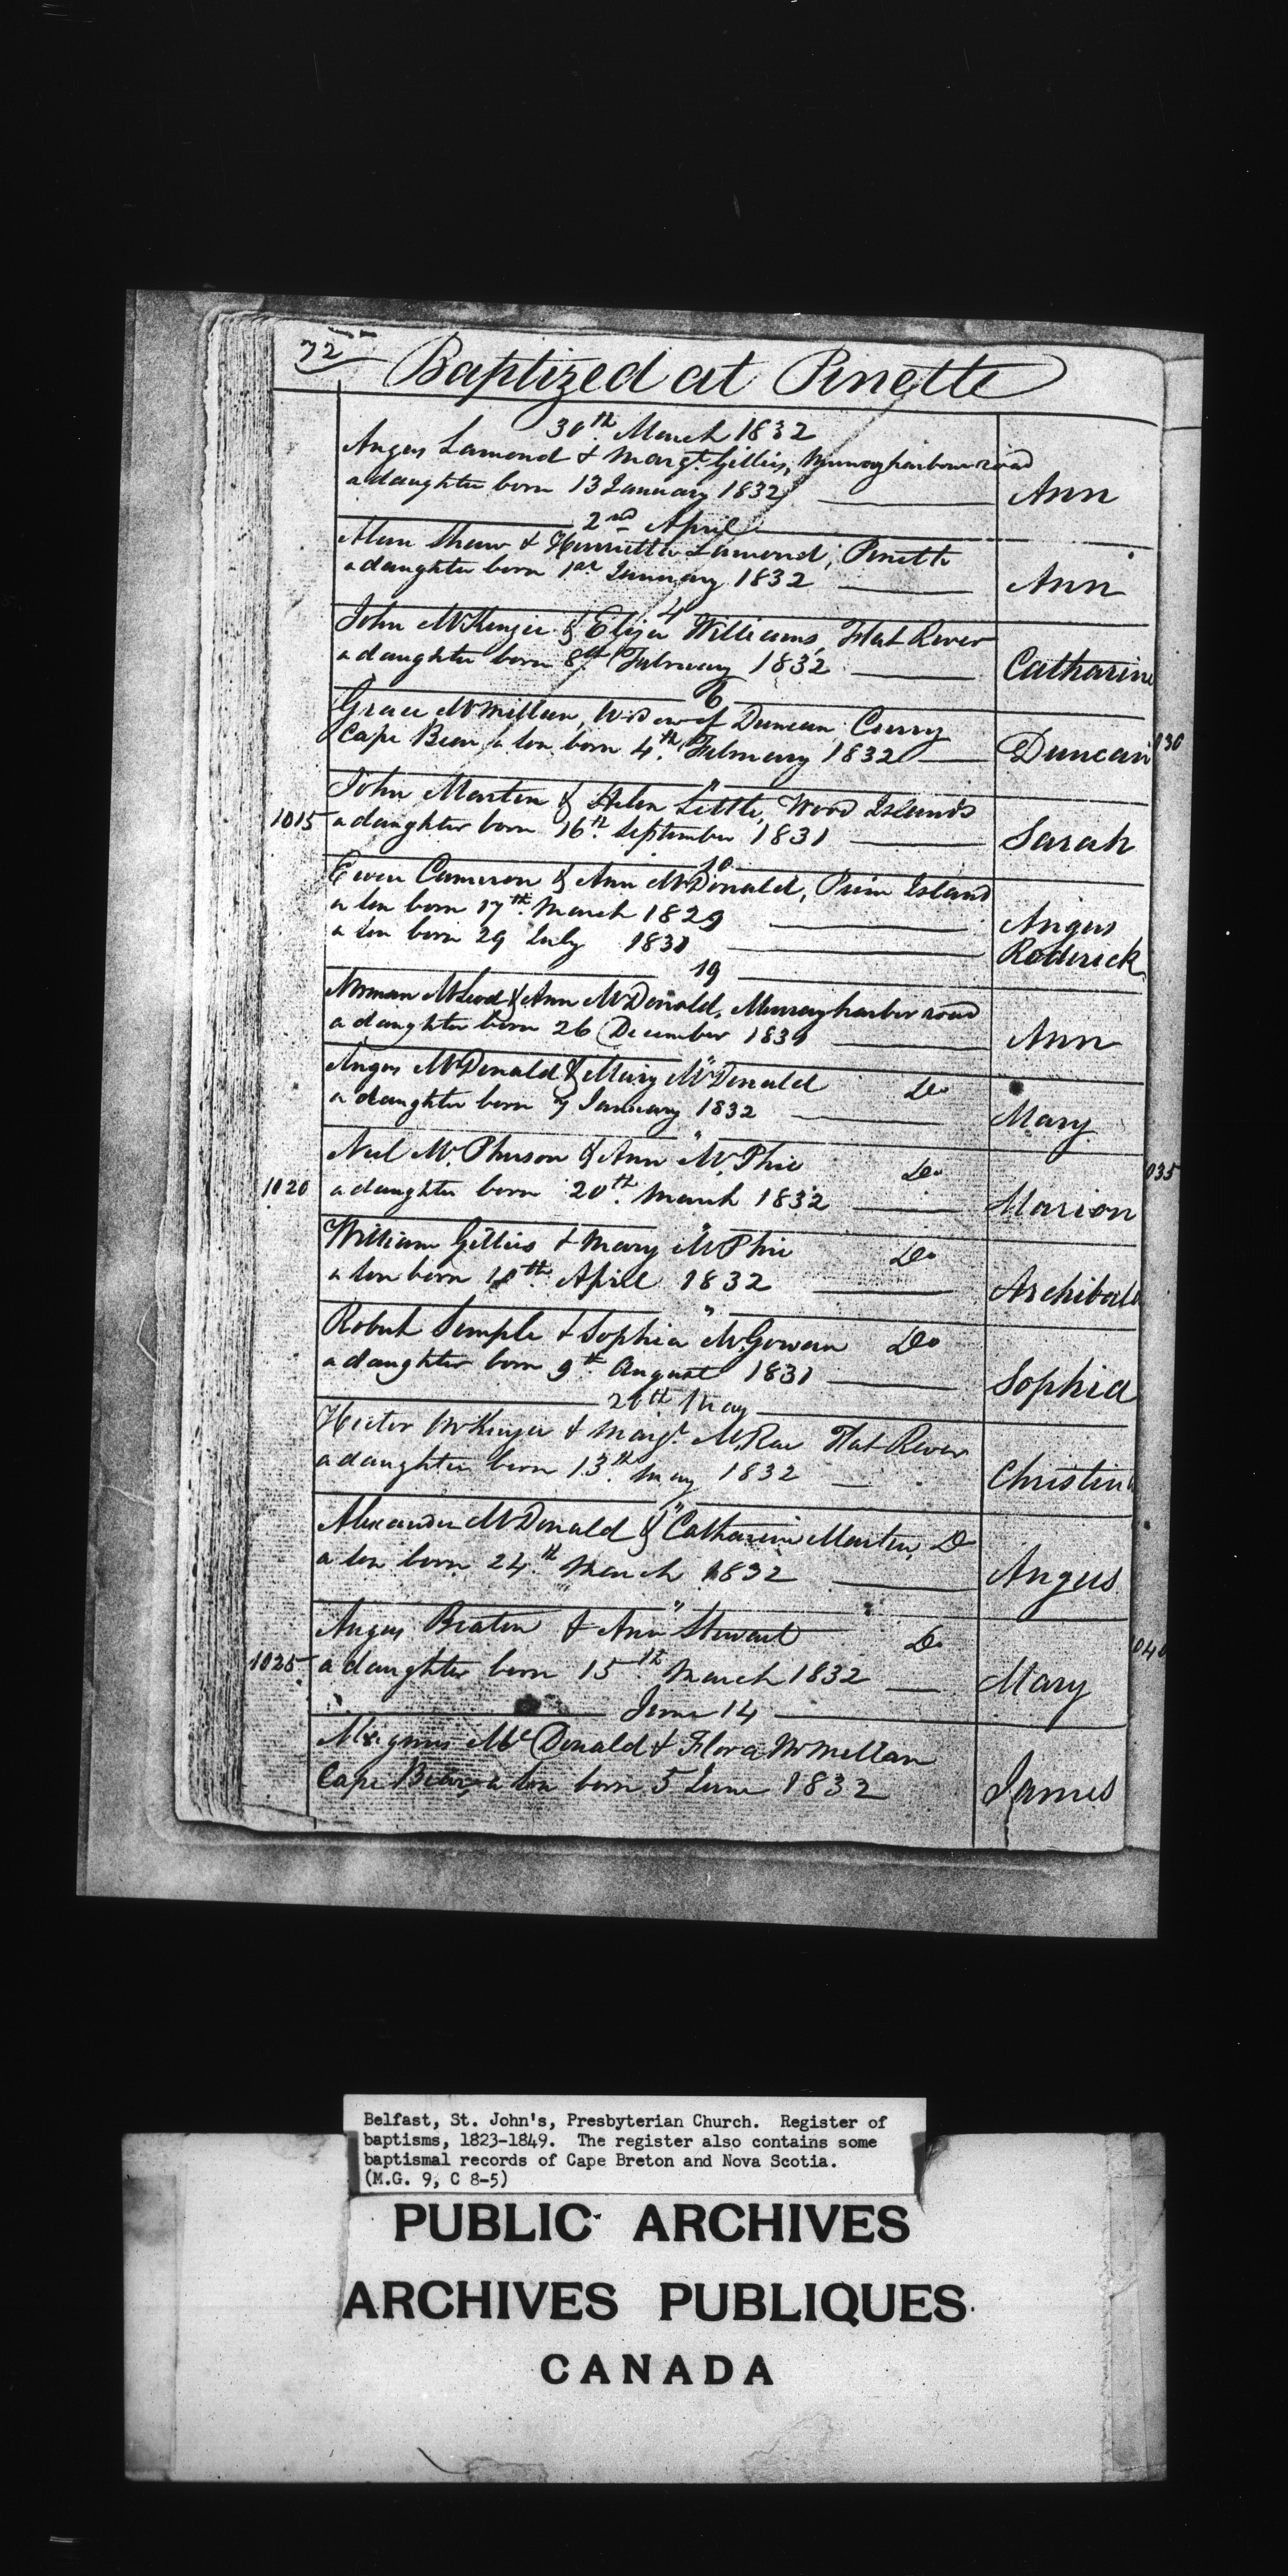 72
Baptized at Pinette
30th March 1832
Angus Lamond & Margt. Gillies, Murrayharbour road
a daughter born 13 January 1832 Ann
2nd April
Allan Shaw & Henrietta Lamond, Pinette
a daughter born 1st January 1832 Ann
4
John McKenzie & Eliza Williams, Flat River
a daughter born 8th February 1832 Catharine
6
Grace McMillan, Widow of Duncan Curry
Cape Bear a son born 4th February 1832 Duncan 030
"
John Martin & Helen Little, Wood Islands
1015 a daughter born 16th September 1831 Sarah
10
Ewen Cameron & Ann McDonald, Prim Island
a son born 17th March 1829 Angus
a son born 29 July 1831 Roderick
19
Norman McLeod & Ann McDonald, Murray harbor road
a daughter born 26 December 1831 Ann
"
Angus McDonald & Mary McDonald Do
a daughter born 7 January 1832 Mary
"
Neil McPherson & Ann McPhie Do 035
1020 a daughter born 20th March 1832 Marion
"
William Gillies & Mary McPhie Do
a son born 10th April 1832 Archibald
"
Robert Semple & Sophia McGowan Do
a daughter born 9th August 1831 Sophia
26th May
Hector McKenzie & Margt. McRae Flat River
a daughter born 13th May 1832 Christina
"
Alexander McDonald & Catharine Martin, D
a son born 24th March 1832 Angus
"
Angus Beaton & Ann Stewart Do 040
1025 a daughter born 15th March 1832 Mary
June 14
Magnus McDonald & Flora McMillan
Cape Bear, a son born 5 June 1832 James
Belfast, St. John's, Presbyterian Church. Register of
baptisms, 1823-1849. The register also contains some
baptismal records of Cape Breton and Nova Scotia.
(M.G. 9, C 8-5)
PUBLIC ARCHIVES
ARCHIVES PUBLIQUES
CANADA